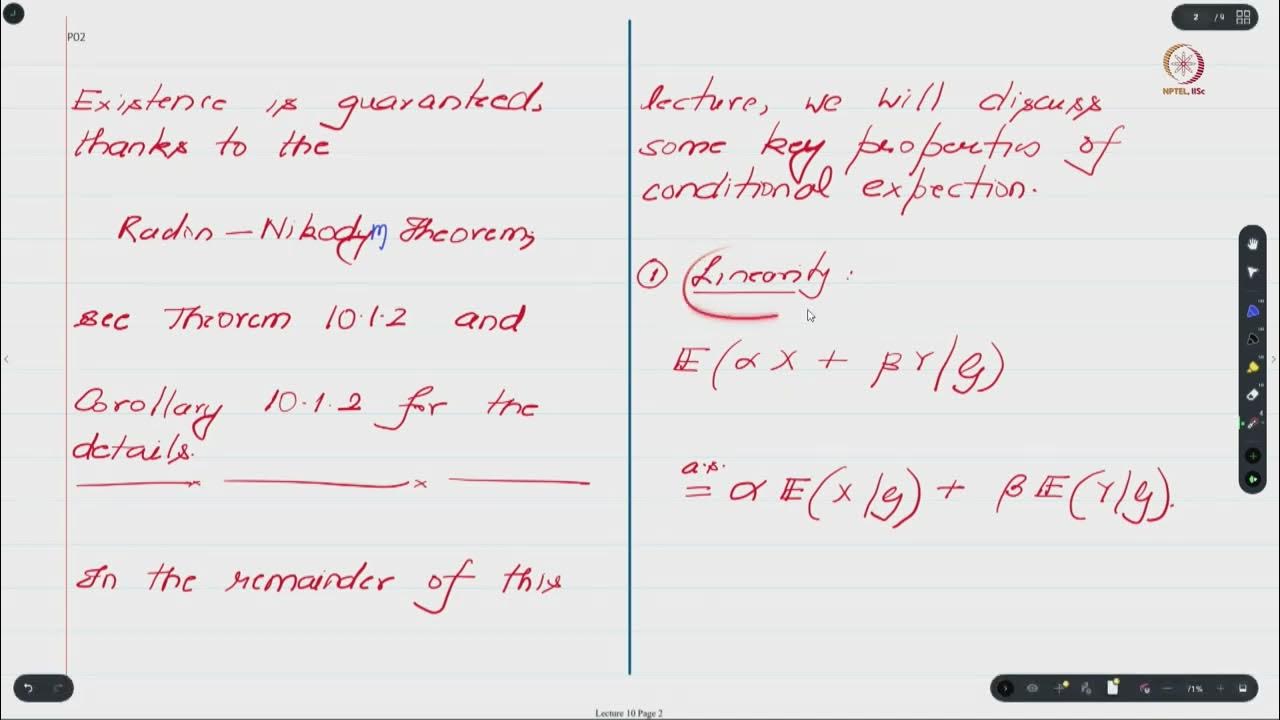 P02
2 / 9
NPTEL, IISc
Existence is guaranteed,
thanks to the
Radon – Nikodym Theorem;
see Theorem 10.1.2 and
Corollary 10.1.2 for the
details.
In the remainder of this
lecture, we will discuss
some key properties of
conditional expection.
① Linearity :
𝔼(αX + βY|𝒢)
a.s.
= α 𝔼(X|𝒢) + β 𝔼(Y|𝒢).
71%
Lecture 10 Page 2